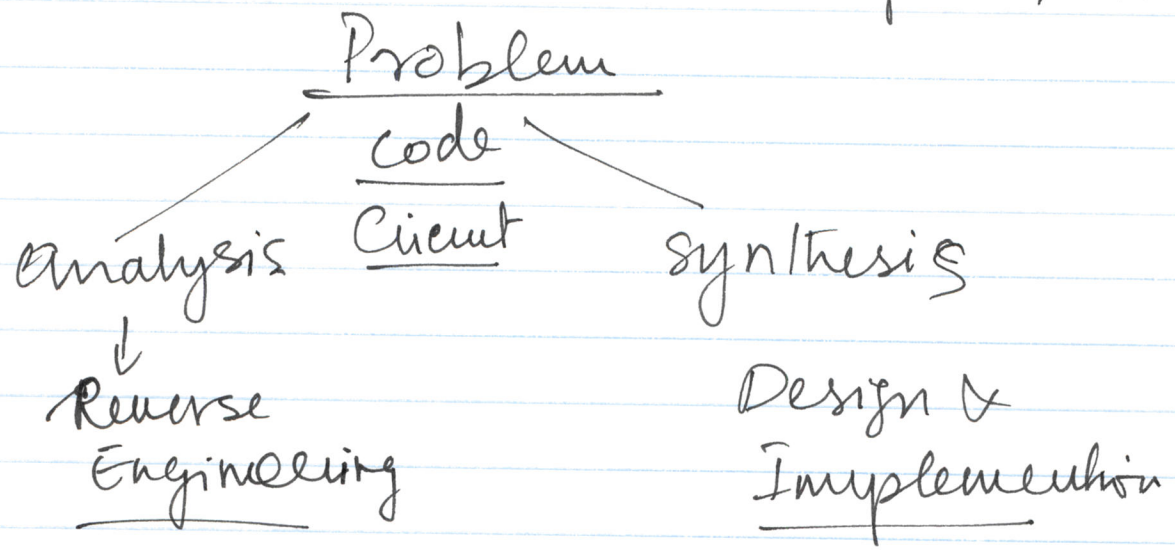 Problem
code
Circuit
Analysis
Synthesis
Reverse
Engineering
Design &
Implemention